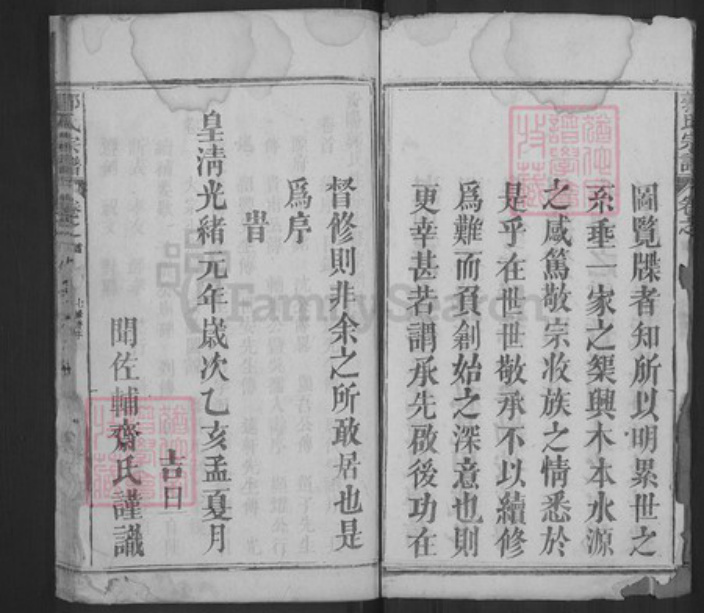 圖覽牒者知所以明累世之
系垂一家之榘興木本水源
之感篤敬宗收族之情悉於
是乎在世世敬承不以續修
爲難而負創始之深意也則
更幸甚若謂承先啟後功在
督修則非余之所敢居也是
爲序
旹
皇淸光緒元年歲次乙亥孟夏月
吉日
聞佐輔齋氏謹識
氏宗譜
卷之
猶他
譜學會
珍藏
猶他
譜學會
珍藏
FamilySearch